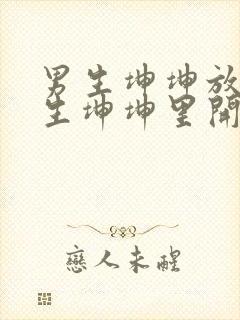 男生坤坤放
生坤坤里開
戀人未醒